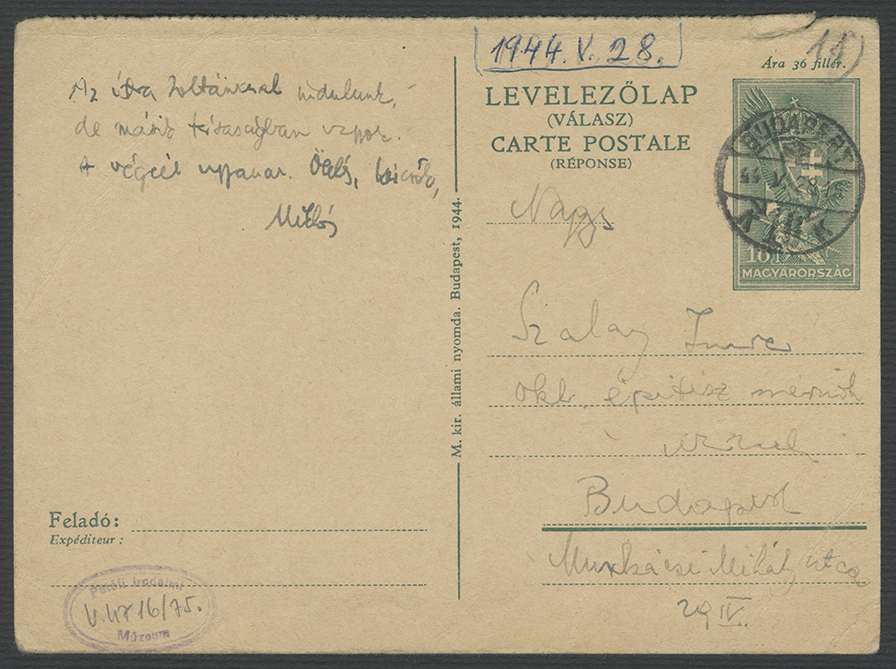 1944. V. 28.
Ára 36 fillér.
LEVELEZŐLAP
(VÁLASZ)
CARTE POSTALE
(RÉPONSE)
BUDAPEST
MAGYARORSZÁG
Az Zoltánnal indulunk,
de másik társaságban
A végcél ugyanaz. Ölelés,
Miklós
M. kir. állami nyomda. Budapest, 1944.
Nagys
Szalay Imre
okl. építész mérnök
úrnak
Budapest
Munkácsi Mihály utca
29 IV.
Feladó:
Expéditeur :
Petőfi Irodalmi
V. 4716/75.
Múzeum